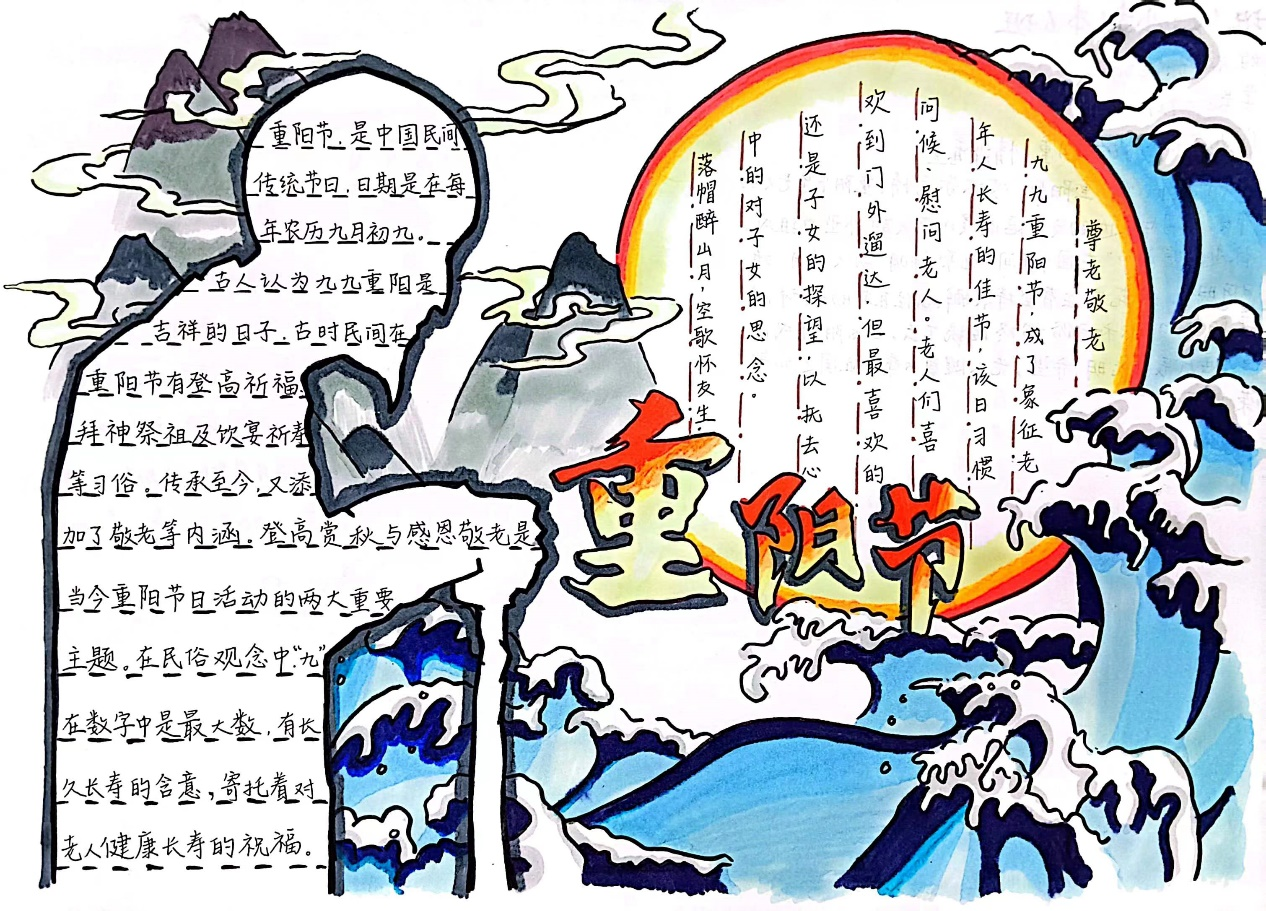 重阳节，是中国民间
传统节日，日期是在每
年农历九月初九。
古人认为九九重阳是
吉祥的日子，古时民间在
重阳节有登高祈福、
拜神祭祖及饮宴祈寿
等习俗。传承至今，又添
加了敬老等内涵。登高赏秋与感恩敬老是
当今重阳节日活动的两大重要
主题。在民俗观念中“九”
在数字中是最大数，有长
久长寿的含意，寄托着对
老人健康长寿的祝福。
重阳节
尊老敬老
九九重阳节，成了象征老
年人长寿的佳节，该日习惯
问候、慰问老人。老人们喜
欢到门外遛达，但最喜欢的
还是子女的探望：以抚去心
中的对子女的思念。
落帽醉山月，空歌怀友生